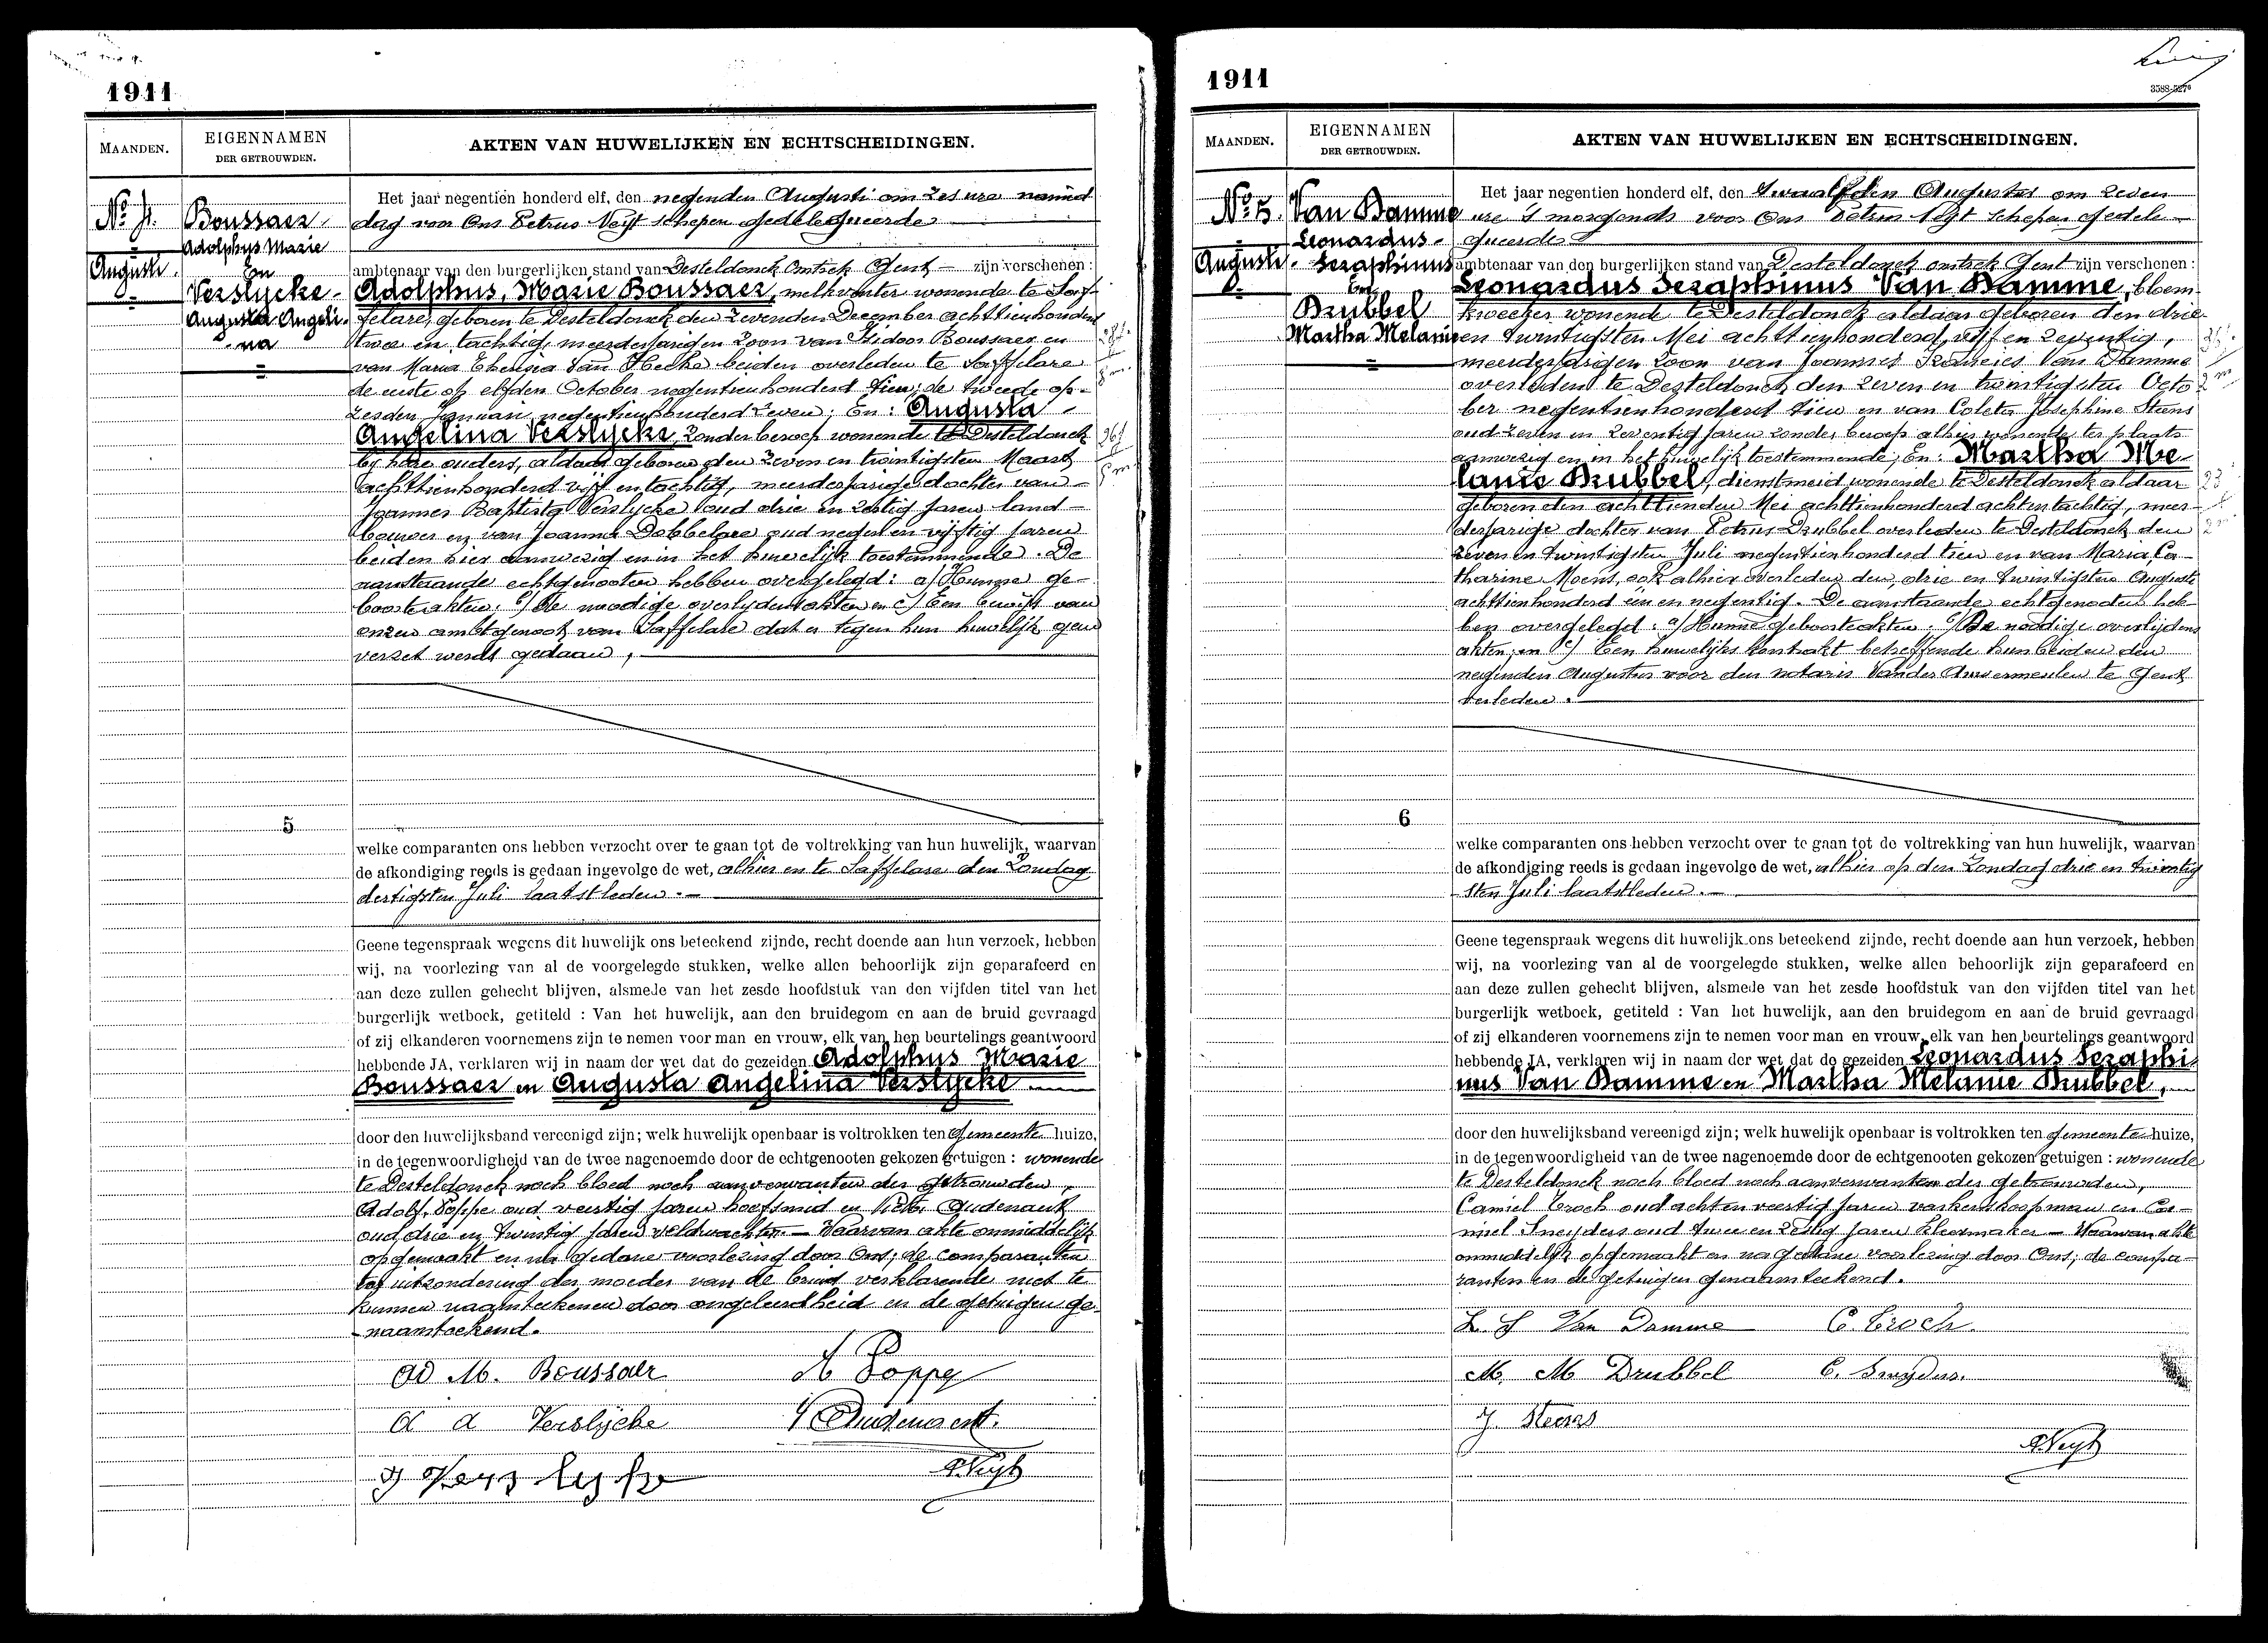 1911
MAANDEN.
EIGENNAMEN
DER GETROUWDEN.
AKTEN VAN HUWELIJKEN EN ECHTSCHEIDINGEN.
Boussaer
Adolphus Marie
En
Verslycke
Augusta Angeli-
na
Augusti.
Het jaar negentien honderd elf, den negenden Augusti om zes ure namid
dag voor Ons Petrus Neyt schepen gedelegueerde
ambtenaar van den burgerlijken stand van Desteldonck Omtrek Gent zijn verschenen:
Adolphus, Marie Boussaer, melkventer wonende te Saf-
felare, geboren te Desteldonck den zevenden December achttienhonderd
twee en tachtig, meerderjarigen zoon van Isidoor Boussaer en
van Maria Theresia Van Hecke beiden overleden te Saffelare
de eerste op elfden October negentienhonderd tien; de tweede op
zesden Januari negentienhonderd zeven; En: Augusta
Angelina Verslycke, zonder beroep wonende te Desteldonck
bij hare ouders, aldaar geboren den zeven en twintigsten Maart
achttienhonderd vijf en tachtig, meerderjarige dochter van
Joannes Baptista Verslycke oud drie en zestig jaren land-
bouwer en van Joanna Dobbelare oud negen en vijftig jaren
beiden hier aanwezig en in het huwelijk toestemmende. De
aanstaande echtgenooten hebben overgelegd: a/ Hunne ge-
boorteakten; b/ De noodige overlijdensakten en c/ Een bewijs van
onzen ambtgenoot van Saffelare dat er tegen hun huwelijk geen
verzet werdt gedaan,
5
welke comparanten ons hebben verzocht over te gaan tot de voltrekking van hun huwelijk, waarvan
de afkondiging reeds is gedaan ingevolge de wet, alhier en te Saffelare den Zondag
dertigsten Juli laatstleden.
Geene tegenspraak wegens dit huwelijk ons beteekend zijnde, recht doende aan hun verzoek, hebben
wij, na voorlezing van al de voorgelegde stukken, welke allen behoorlijk zijn geparafeerd en
aan deze zullen gehecht blijven, alsmede van het zesde hoofdstuk van den vijfden titel van het
burgerlijk wetboek, getiteld : Van het huwelijk, aan den bruidegom en aan de bruid gevraagd
of zij elkanderen voornemens zijn te nemen voor man en vrouw, elk van hen beurtelings geantwoord
hebbende JA, verklaren wij in naam der wet dat de gezeiden Adolphus Marie
Boussaer en Augusta Angelina Verslycke
door den huwelijksband vereenigd zijn; welk huwelijk openbaar is voltrokken ten gemeente huize,
in de tegenwoordigheid van de twee nagenoemde door de echtgenooten gekozen getuigen : wonende
te Desteldonck noch bloed noch aanverwanten der getrouwden,
Adolf Poppe oud veertig jaren hoefsmid en Victor Oudenaert
oud drie en twintig jaren veldwachter — Waarvan akte onmiddelijk
opgemaakt en na gedane voorlezing door Ons; de comparanten
ter uitzondering der moeder van de bruid verklarende niet te
kunnen naamteekenen door ongeleerdheid en de getuigen ge-
naamteekend.
Ad M. Boussaer
A Poppe
A A Verslycke
V Oudenaert.
J Verslycke
P Neyt
1911
3588-5276
MAANDEN.
EIGENNAMEN
DER GETROUWDEN.
AKTEN VAN HUWELIJKEN EN ECHTSCHEIDINGEN.
No 5.
Van Damme
Leonardus
Seraphinus
En
Drubbel
Martha Melanie
Augusti.
Het jaar negentien honderd elf, den twaalfden Augustus om zeven
ure 's morgends voor Ons Petrus Neyt schepen gedele-
gueerde
ambtenaar van den burgerlijken stand van Desteldonck omtrek Gent zijn verschenen:
Leonardus Seraphinus Van Damme, bloem-
kweeker wonende te Desteldonck aldaar geboren den drie
en twintigsten Mei achttienhonderd vijf en zeventig,
meerderjarigen zoon van Joannes Francies Van Damme
overleden te Desteldonck den zeven en twintigsten Octo
ber negentienhonderd tien en van Coleta Josephine Steens
oud zeven en zeventig jaren zonder beroep alhier wonende ter plaats
aanwezig en in het huwelijk toestemmende; En: Martha Me-
lanie Drubbel, dienstmeid wonende te Desteldonck aldaar
geboren den achttienden Mei achttienhonderd achtentachtig, meer-
derjarige dochter van Petrus Drubbel overleden te Desteldonck den
zeven en twintigsten Juli negentienhonderd tien en van Maria Ca-
tharine Moens, ook alhier overleden den drie en twintigsten Augusti
achttienhonderd een en negentig. De aanstaande echtgenooten heb-
ben overgelegd: a/ Hunne geboorteakten; b/ De noodige overlijdens
akten; en c/ Een huwelijks kontrakt betreffende hun beiden den
negenden Augustus voor den notaris Vander Auwermeulen te Gent
verleden.
6
welke comparanten ons hebben verzocht over te gaan tot de voltrekking van hun huwelijk, waarvan
de afkondiging reeds is gedaan ingevolge de wet, alhier op den Zondag drie en twintig
sten Juli laatstleden.
Geene tegenspraak wegens dit huwelijk ons beteekend zijnde, recht doende aan hun verzoek, hebben
wij, na voorlezing van al de voorgelegde stukken, welke allen behoorlijk zijn geparafeerd en
aan deze zullen gehecht blijven, alsmede van het zesde hoofdstuk van den vijfden titel van het
burgerlijk wetboek, getiteld : Van het huwelijk, aan den bruidegom en aan de bruid gevraagd
of zij elkanderen voornemens zijn te nemen voor man en vrouw, elk van hen beurtelings geantwoord
hebbende JA, verklaren wij in naam der wet dat de gezeiden Leonardus Seraphi-
nus Van Damme en Martha Melanie Drubbel,
door den huwelijksband vereenigd zijn; welk huwelijk openbaar is voltrokken ten gemeente huize,
in de tegenwoordigheid van de twee nagenoemde door de echtgenooten gekozen getuigen : wonende
te Desteldonck noch bloed noch aanverwanten der getrouwden,
Camiel Croch oud acht en veertig jaren varkenskoopman en Ca-
miel Sneyders oud twee en zestig jaren kleermaker — Waarvan akte
onmiddelijk opgemaakt en na gedane voorlezing door Ons; de compa-
ranten en de getuigen genaamteekend.
L S Van Damme
C. Croch.
M. M Drubbel
C. Sneyders.
J. Steens
P Neyt